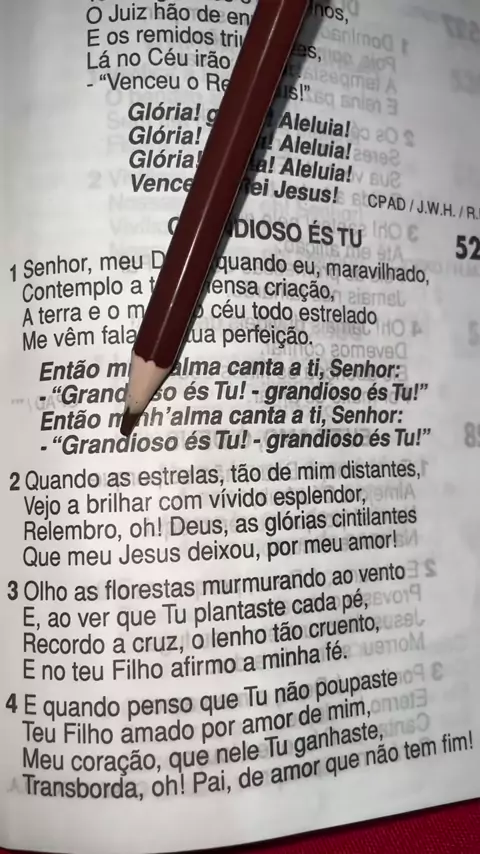 O Juiz hão de en nos,
E os remidos tri es,
Lá no Céu irão
- “Venceu o Re us!”
Glória! g ! Aleluia!
Glória! ! Aleluia!
Glória! a! Aleluia!
Vence ei Jesus!
CPAD / J.W.H. / R.
G NDIOSO ÉS TU 52
1 Senhor, meu D quando eu, maravilhado,
Contemplo a t ensa criação,
A terra e o m o céu todo estrelado
Me vêm fala tua perfeição.
Então m alma canta a ti, Senhor:
- “Grand so és Tu! - grandioso és Tu!”
Então minh’alma canta a ti, Senhor:
- “Grandioso és Tu! - grandioso és Tu!”
2 Quando as estrelas, tão de mim distantes,
Vejo a brilhar com vívido esplendor,
Relembro, oh! Deus, as glórias cintilantes
Que meu Jesus deixou, por meu amor!
3 Olho as florestas murmurando ao vento
E, ao ver que Tu plantaste cada pé,
Recordo a cruz, o lenho tão cruento,
E no teu Filho afirmo a minha fé.
4 E quando penso que Tu não poupaste
Teu Filho amado por amor de mim,
Meu coração, que nele Tu ganhaste,
Transborda, oh! Pai, de amor que não tem fim!